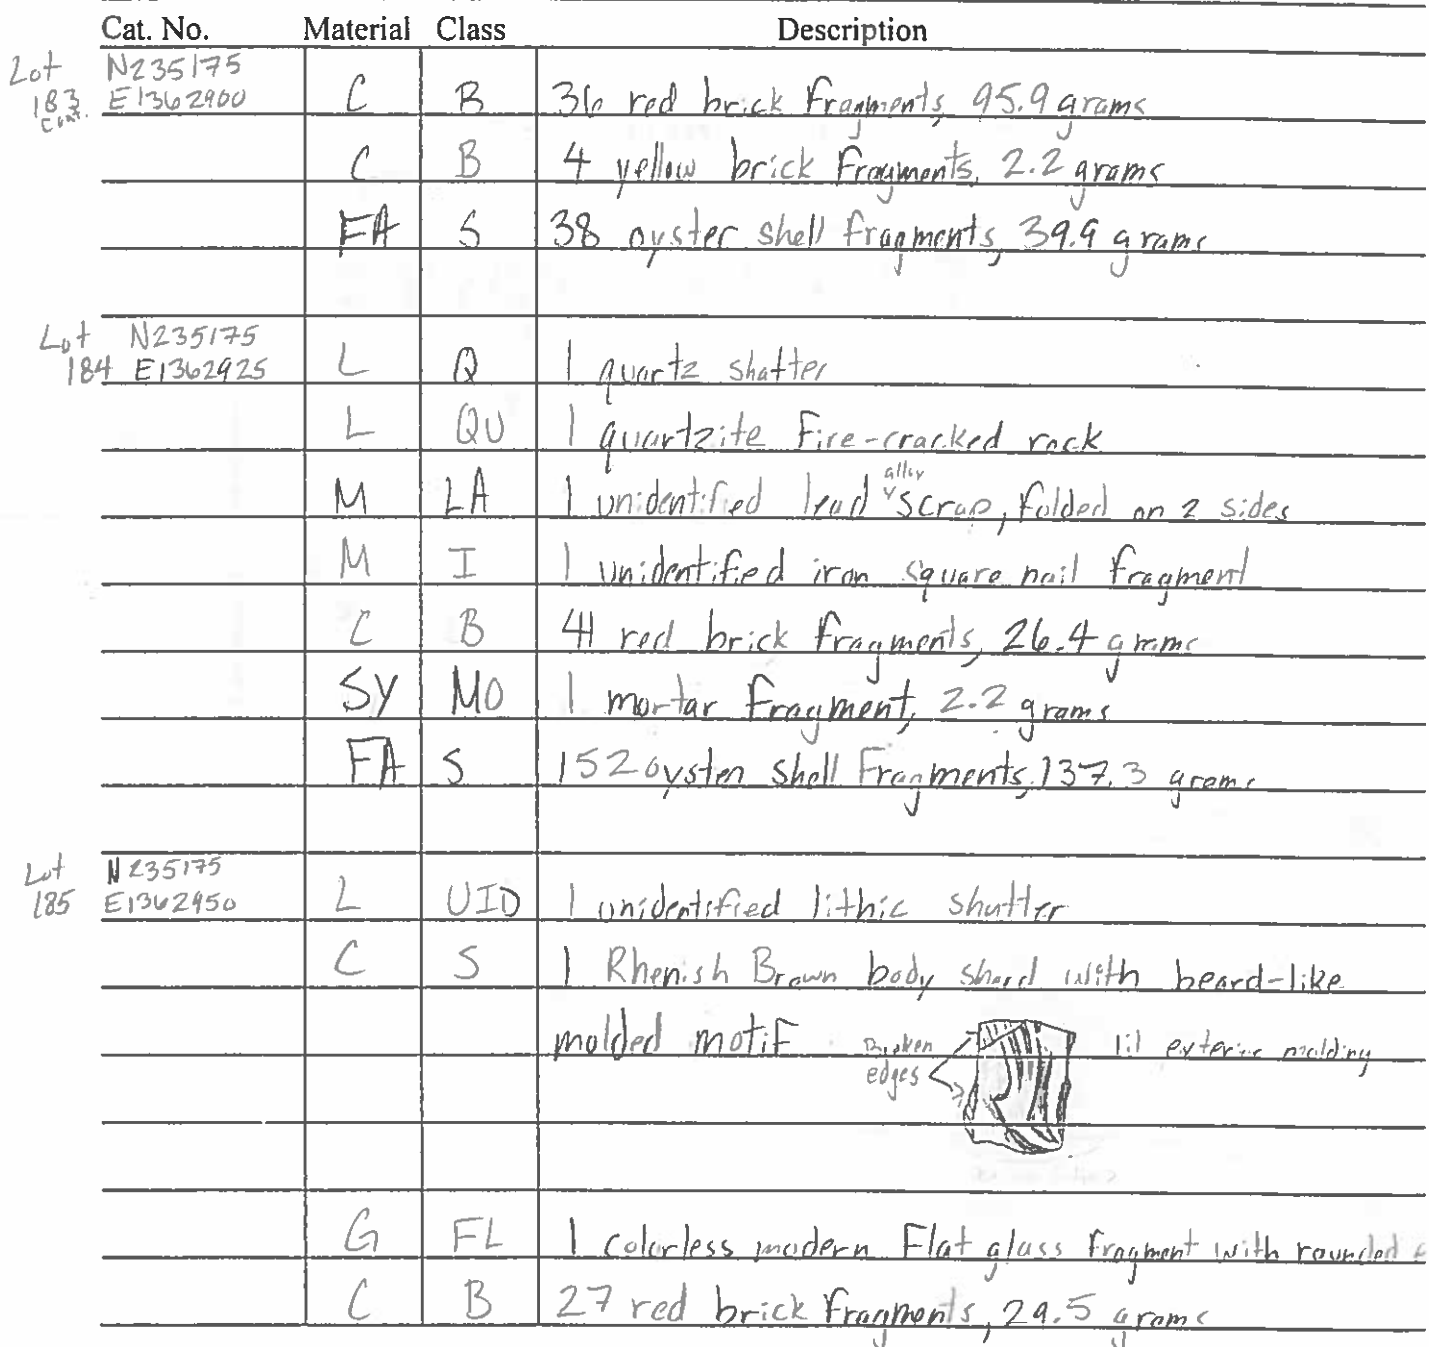 Cat. No. Material Class Description
Lot N235175
183 E1362900 C B 36 red brick fragments, 95.9 grams
Cont.
C B 4 yellow brick fragments, 2.2 grams
FA S 38 oyster shell fragments, 39.9 grams
Lot N235175
184 E1362925 L Q 1 quartz shatter
L QU 1 quartzite fire-cracked rock
alloy
M LA 1 unidentified lead scrap, folded on 2 sides
M I 1 unidentified iron square nail fragment
C B 41 red brick fragments, 26.4 grams
SY MO 1 mortar fragment, 2.2 grams
FA S 152 oyster shell fragments, 137.3 grams
Lot N235175
185 E1362950 L UID 1 unidentified lithic shatter
C S 1 Rhenish Brown body sherd with beard-like
molded motif Broken 1:1 exterior molding
edges
G FL 1 colorless modern flat glass fragment with rounded
C B 27 red brick fragments, 29.5 grams